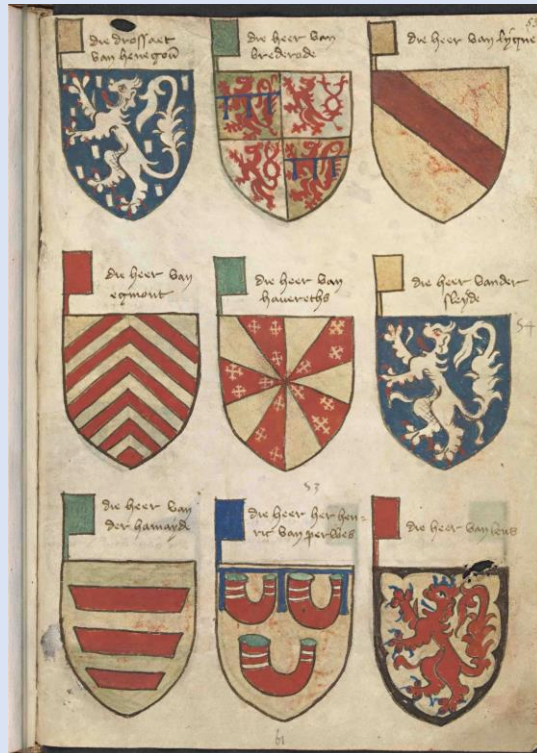 die drossaet
van henegou
die heer van
brederode
die heer van lygne
die heer van
egmont
die heer van
havereths
die heer vander
sleyde
54
die heer van
der hamayde
53
die heer her hen-
ric van perwes
die heer van lens
61